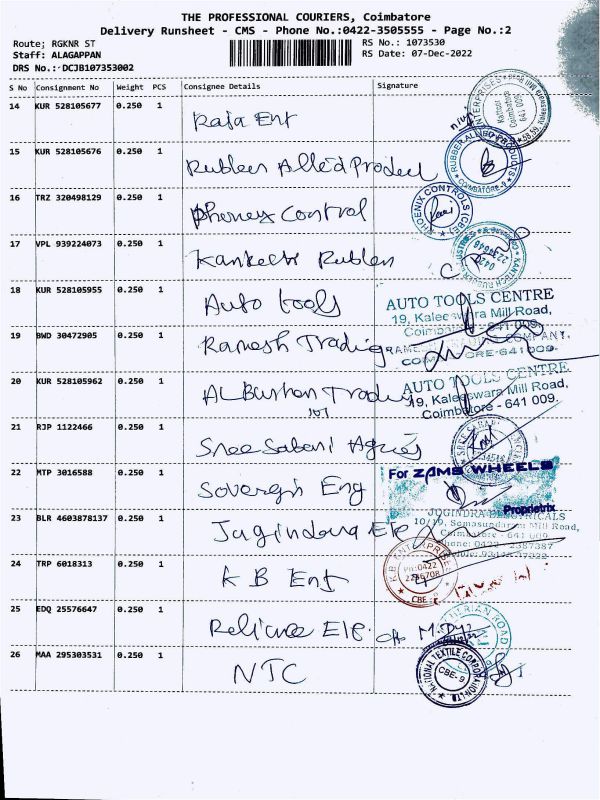 THE PROFESSIONAL COURIERS, Coimbatore
Delivery Runsheet - CMS - Phone No.:0422-3505555 - Page No.:2
Route; RGKNR ST
RS No.: 1073530
Staff: ALAGAPPAN
RS Date: 07-Dec-2022
DRS No.: DCJB107353002
S No Consignment No Weight PCS Consignee Details Signature
14 KUR 528105677 0.250 1
Raja Ent
ENTERPRISES
Kattoor
Coimbatore
641 009
15 KUR 528105676 0.250 1
RUBBER ALLIED PRODUCTS
COIMBATORE-9
16 TRZ 320498129 0.250 1
Control
PHOENIX CONTROLS (CBE)
17 VPL 939224073 0.250 1
0422
2234648
18 KUR 528105955 0.250 1
Auto tools
AUTO TOOLS CENTRE
19, Kaleeswara Mill Road,
Coimbatore - 641 009.
19 BWD 30472905 0.250 1
Ramesh Trading
COMPANY,
20 KUR 528105962 0.250 1
AUTO TOOLS CENTRE
19, Kaleeswara Mill Road,
Coimbatore - 641 009.
21 RJP 1122466 0.250 1
22 MTP 3016588 0.250 1
Eng
For ZAMS WHEELS
Proprietrix
23 BLR 4603878137 0.250 1
JOGINDRA ELECTRICALS
10/19, Somasundaram Mill Road,
Coimbatore - 641 009
Phone: 0422 - 2387387
24 TRP 6018313 0.250 1
K B Ent
K.B. ENTERPRISES
PH:0422
2236708
CBE
25 EDQ 25576647 0.250 1
Reliance Ele.
ROAD
26 MAA 295303531 0.250 1
NTC
NATIONAL TEXTILE CORPORATION LTD
CBE-9